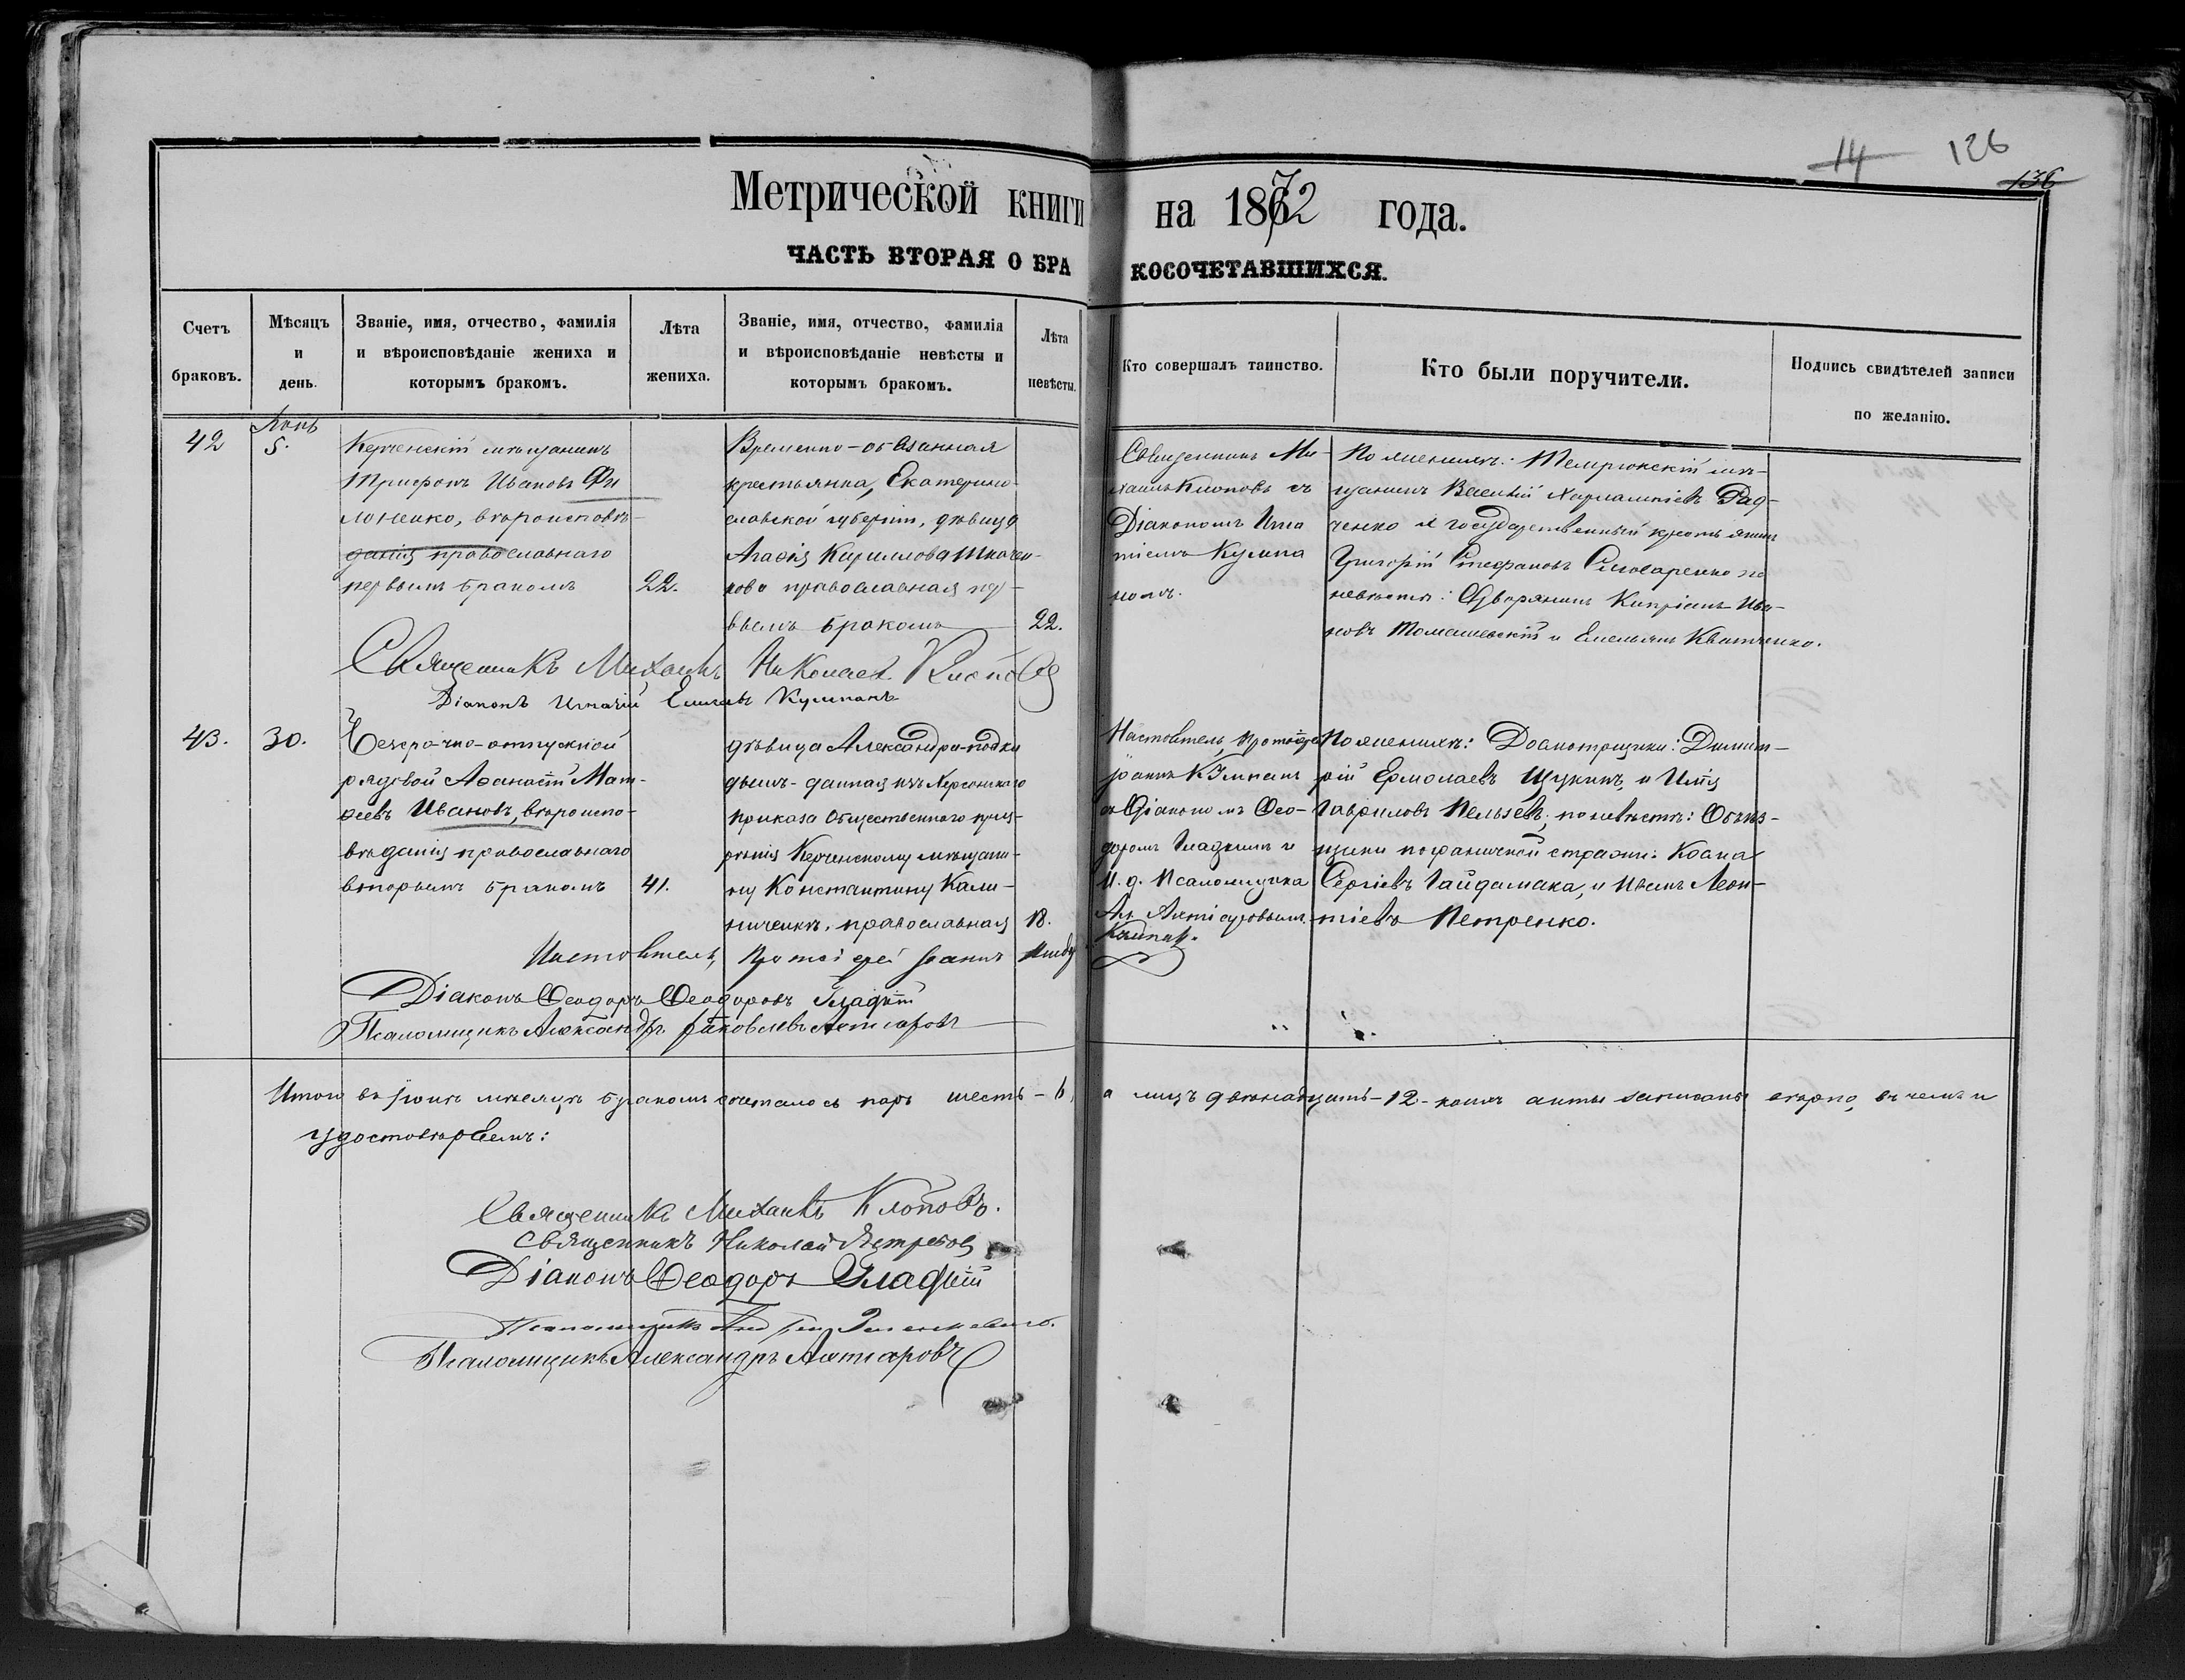 14 126
136
Метрической книги на 1872 года.
ЧАСТЬ ВТОРАЯ О БРАКОСОЧЕТАВШИХСЯ.
Счетъ браковъ.
Мѣсяцъ и день.
Званіе, имя, отчество, фамилія
и вѣроисповѣданіе жениха и
которымъ бракомъ.
Лѣта жениха.
Званіе, имя, отчество, фамилія
и вѣроисповѣданіе невѣсты и
которымъ бракомъ.
Лѣта невѣсты.
Кто совершалъ таинство.
Кто были поручители.
Подпись свидѣтелей записи
по желанію.
42
5.
Керченскій мѣщанинъ
Трифонъ Ивановъ Фи
лоненко, вѣроисповѣ-
данія православнаго
первымъ бракомъ
22.
Временно-обязанная
крестьянка, Екатерино-
славской губерніи, дѣвица
Агафія Кириллова Ткачен-
кова православная пер-
вымъ бракомъ
22.
Священникъ Ми-
хаилъ Клоповъ съ
Діакономъ Игна
тіемъ Кулпа
номъ.
По женихѣ: Темрюкскій мѣ-
щанинъ Василій Харлампіевъ Рад-
ченко и государственный крестьянинъ
Григорій Стефановъ Слюсаренко по
невѣстѣ: Дворянинъ Кипріанъ Ива-
новъ Томашевскій и Емельянъ Кватченко.
Священникъ Михаилъ Николаев Клопов
Діаконъ Игнатій Кулпанъ
43.
30.
Безсрочно-отпускной
рядовой Аѳанасій Мат-
ѳеевъ Ивановъ, вѣроиспо-
вѣданія православнаго
вторымъ бракомъ
41.
дѣвица Александра-подки
дышъ-данная изъ Херсонскаго
приказа Общественнаго приз-
рѣнія Керченскому мѣщани-
ну Константину Кали-
ниченкѣ, православная
18.
Настоятель, Протоіере
Іоаннъ Кулпанъ
съ Діакономъ Ѳео-
доромъ Гладкимъ и
И. д. Псаломщика
Ахтіаровымъ.
По женихѣ: Досмотрщики: Димит-
рій Ермолаевъ Щукинъ, и Илія
Гавриловъ Пельзевъ; по невѣстѣ: Объѣз-
щики пограничной стражи:
Сергіевъ Гайдамака, и Иванъ Леон-
тіевъ Петренко.
Настоятель, Протоіерей Іоаннъ
Діаконъ Ѳеодоръ Ѳеодоровъ Гладкій
Псаломщикъ Александръ Яковлевъ Ахтіаровъ
Итого въ Іюнѣ мѣсяцѣ бракомъ сочеталось паръ шесть-6, а лицъ двѣнадцать-12-коихъ акты записаны вѣрно, въ чемъ и
удостовѣряемъ:
Священникъ Михаилъ Клоповъ.
Священникъ Николай Ястребов
Діаконъ Ѳеодоръ Гладкій
Псаломщикъ
Псаломщикъ Александръ Ахтіаровъ